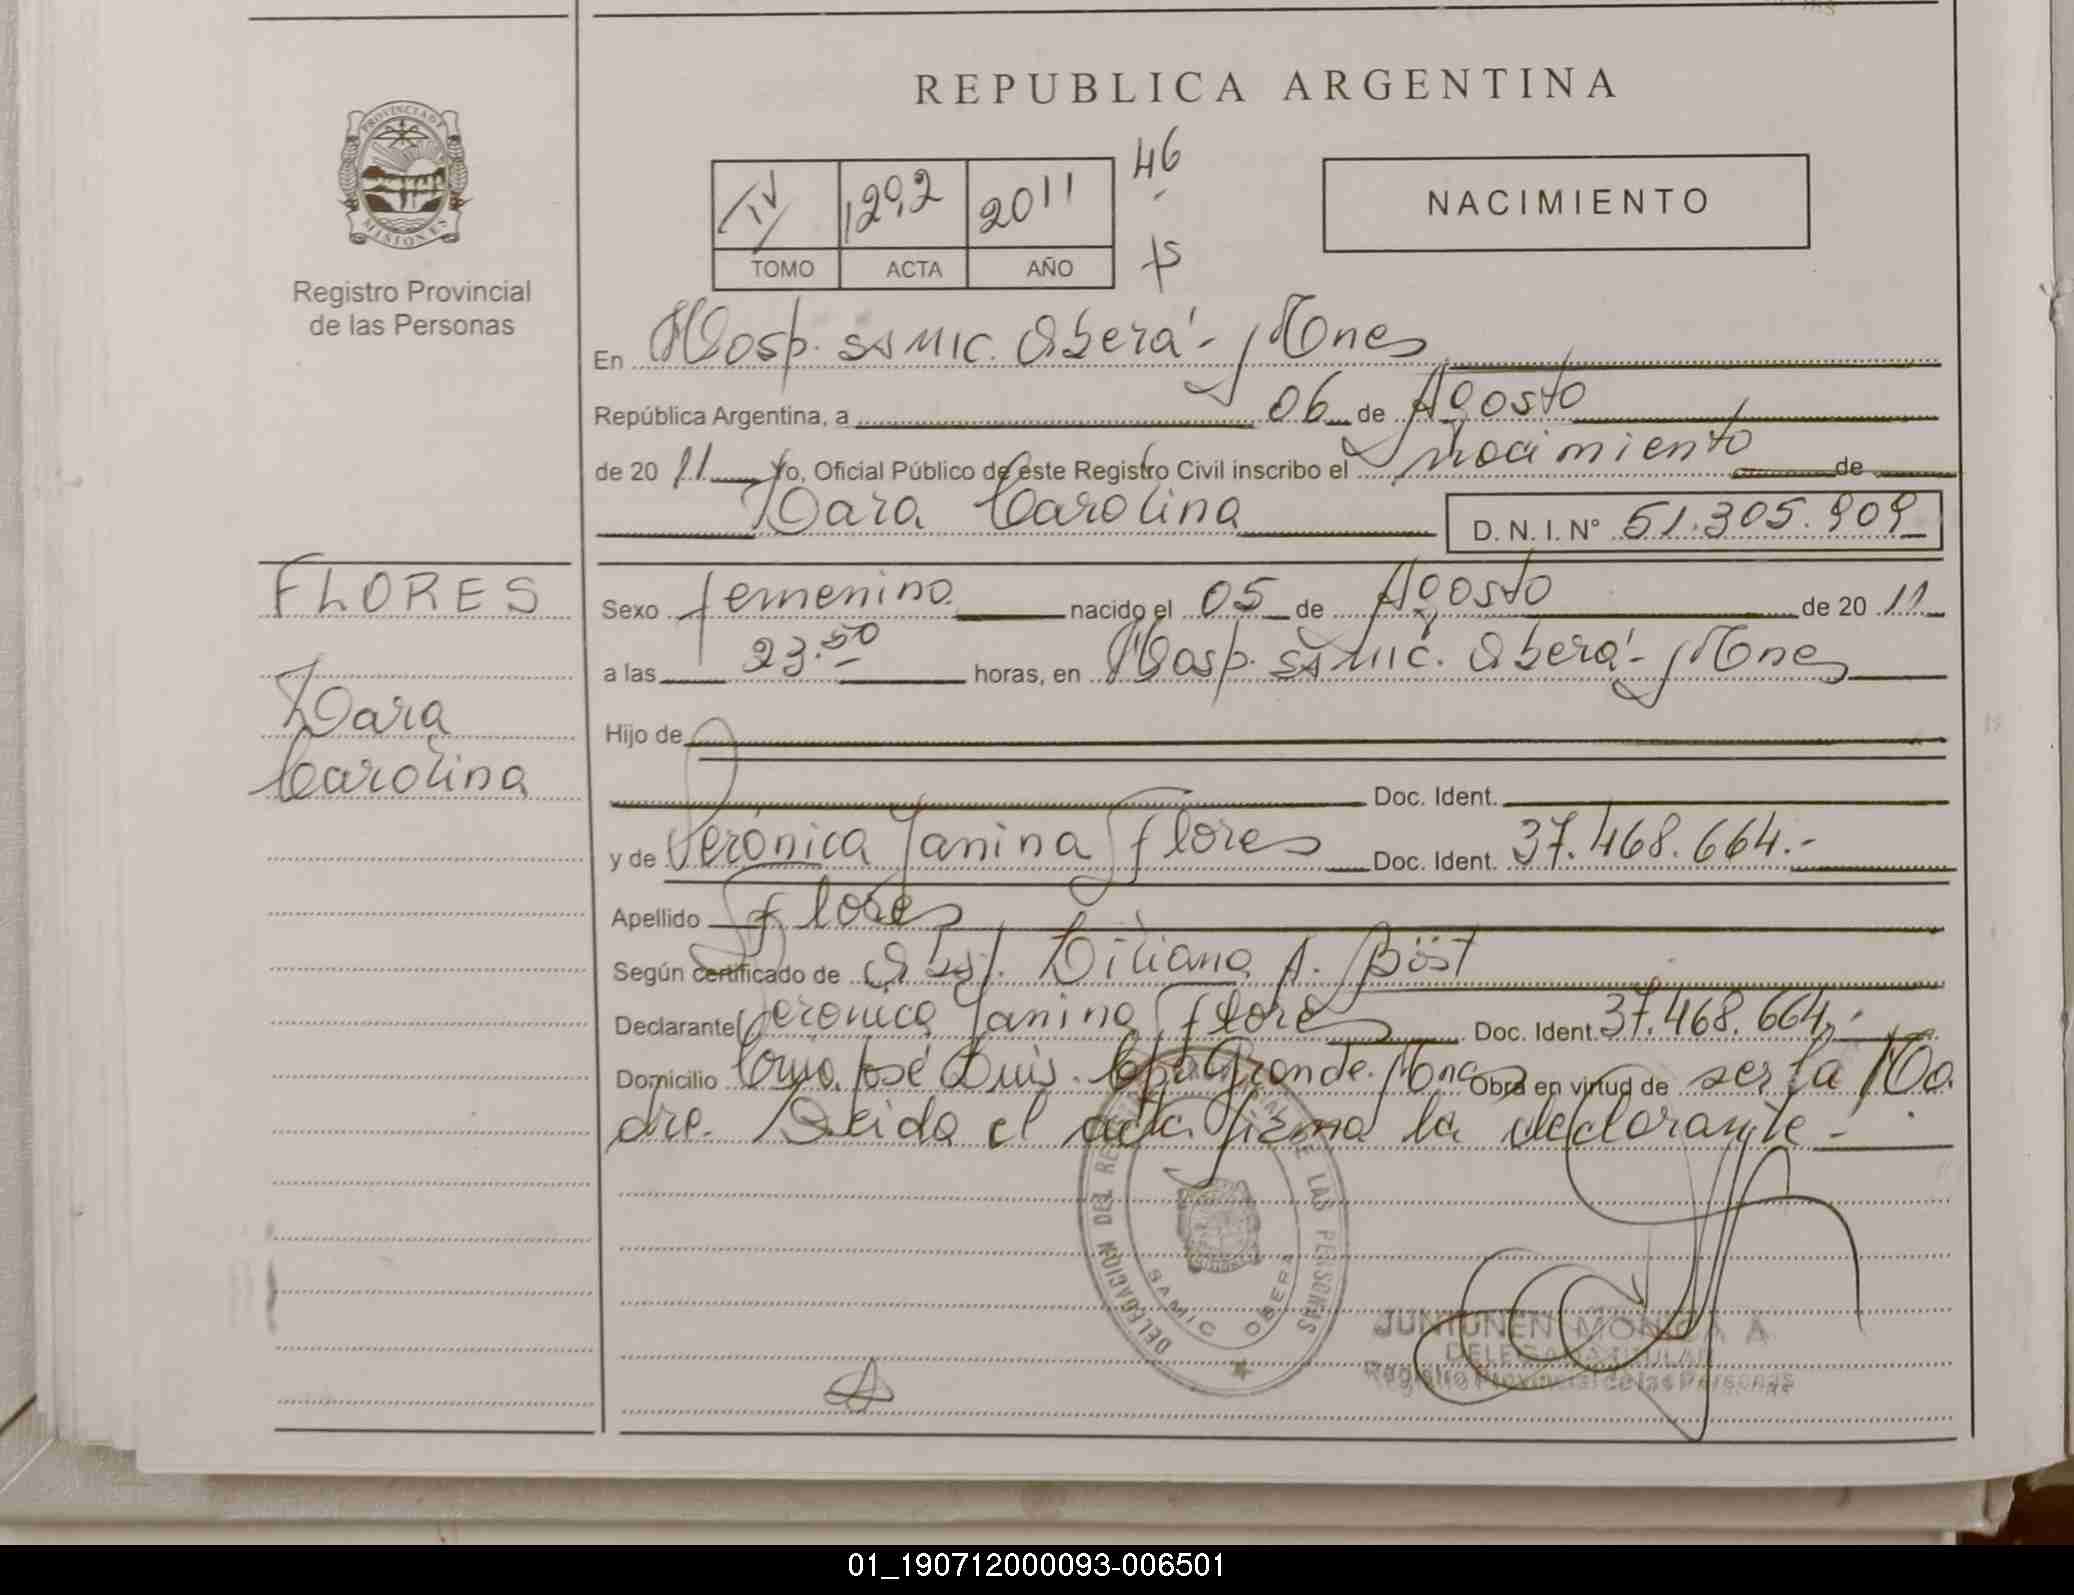 REPUBLICA ARGENTINA
PROVINCIA DE MISIONES
Registro Provincial
de las Personas
IV 1292 2011
TOMO ACTA AÑO
46
NACIMIENTO
En Hosp. SAMIC. Oberá - Mnes
República Argentina, a 06 de Agosto
de 20 11 Yo, Oficial Público de este Registro Civil inscribo el nacimiento de
Dara Carolina D. N. I. N° 51.305.909
FLORES
Dara
Carolina
Sexo femenino nacido el 05 de Agosto de 20 11
a las 23.50 horas, en Hosp. SAMIC. Oberá - Mnes
Hijo de
Doc. Ident.
y de Verónica Yanina Flores Doc. Ident. 37.468.664.-
Apellido Flores
Según certificado de Obst. Liliana A. Böst
Declarante Verónica Yanina Flores Doc. Ident. 37.468.664.-
Domicilio José Luis. Grande. Mnes Obra en virtud de ser la Ma
dre. Leida el acta firma la declarante -
DELEGACION DEL REGISTRO PROVINCIAL DE LAS PERSONAS
SAMIC OBERA
JUNTUNEN MONICA A
DELEGADA TITULAR
Registro Provincial de las Personas
01_190712000093-006501